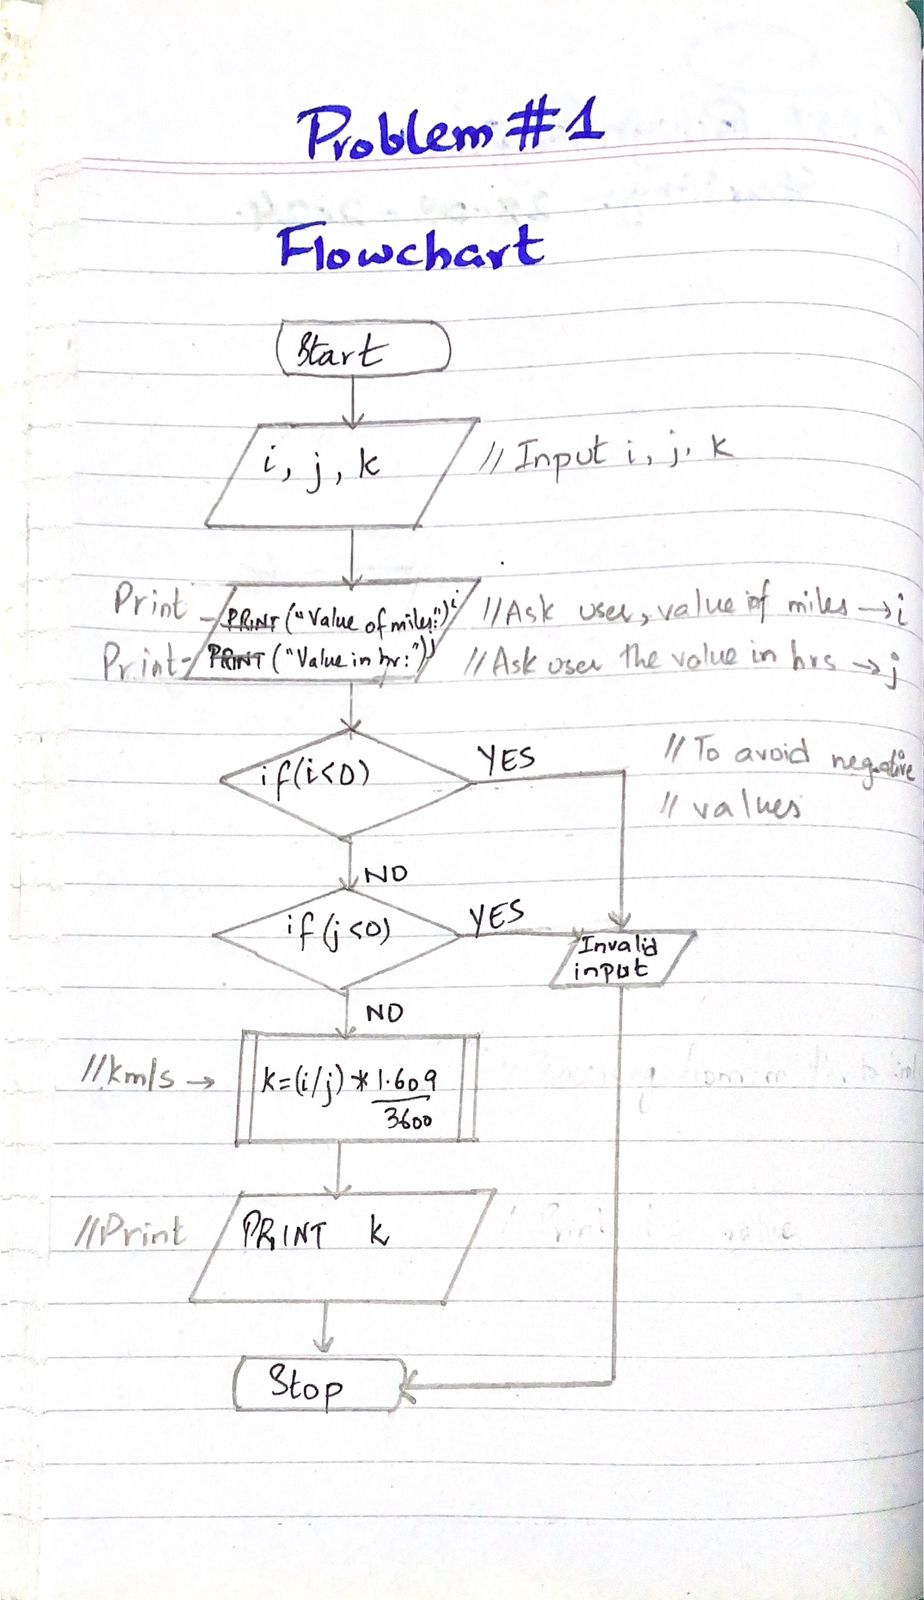 Problem #1
Flowchart
Start
i, j, k // Input i, j, k
Print PRINT ("Value of miles:") i // Ask user, value of miles → i
Print PRINT ("Value in hr:") j // Ask user the value in hrs → j
if (i<0) YES // To avoid negative
// values
NO
if (j<0) YES Invalid
input
NO
//km/s → k=(i/j) * 1.609
3600
//Print PRINT k
Stop